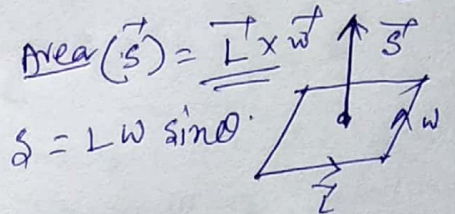 Area (S⃗) = L⃗ × w⃗
S = L W sinθ.
S⃗
w
L